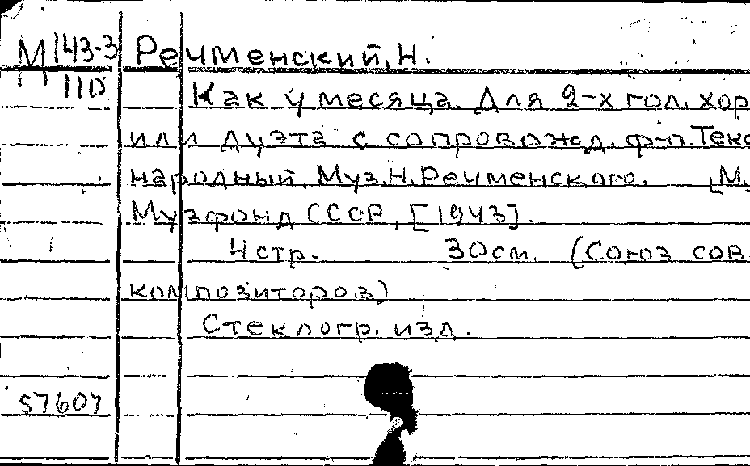 М 143-3 Речменский, Н.
110 Как у месяца. Для 2-х гол. хор
или дуэта с сопровожд. ф-п. Текс
народный. Муз. Н. Речменского. [М.,
Музфонд СССР, [1943].
4 стр. 30 см. (Союз сов.
композиторов)
Стеклогр. изд.
57607